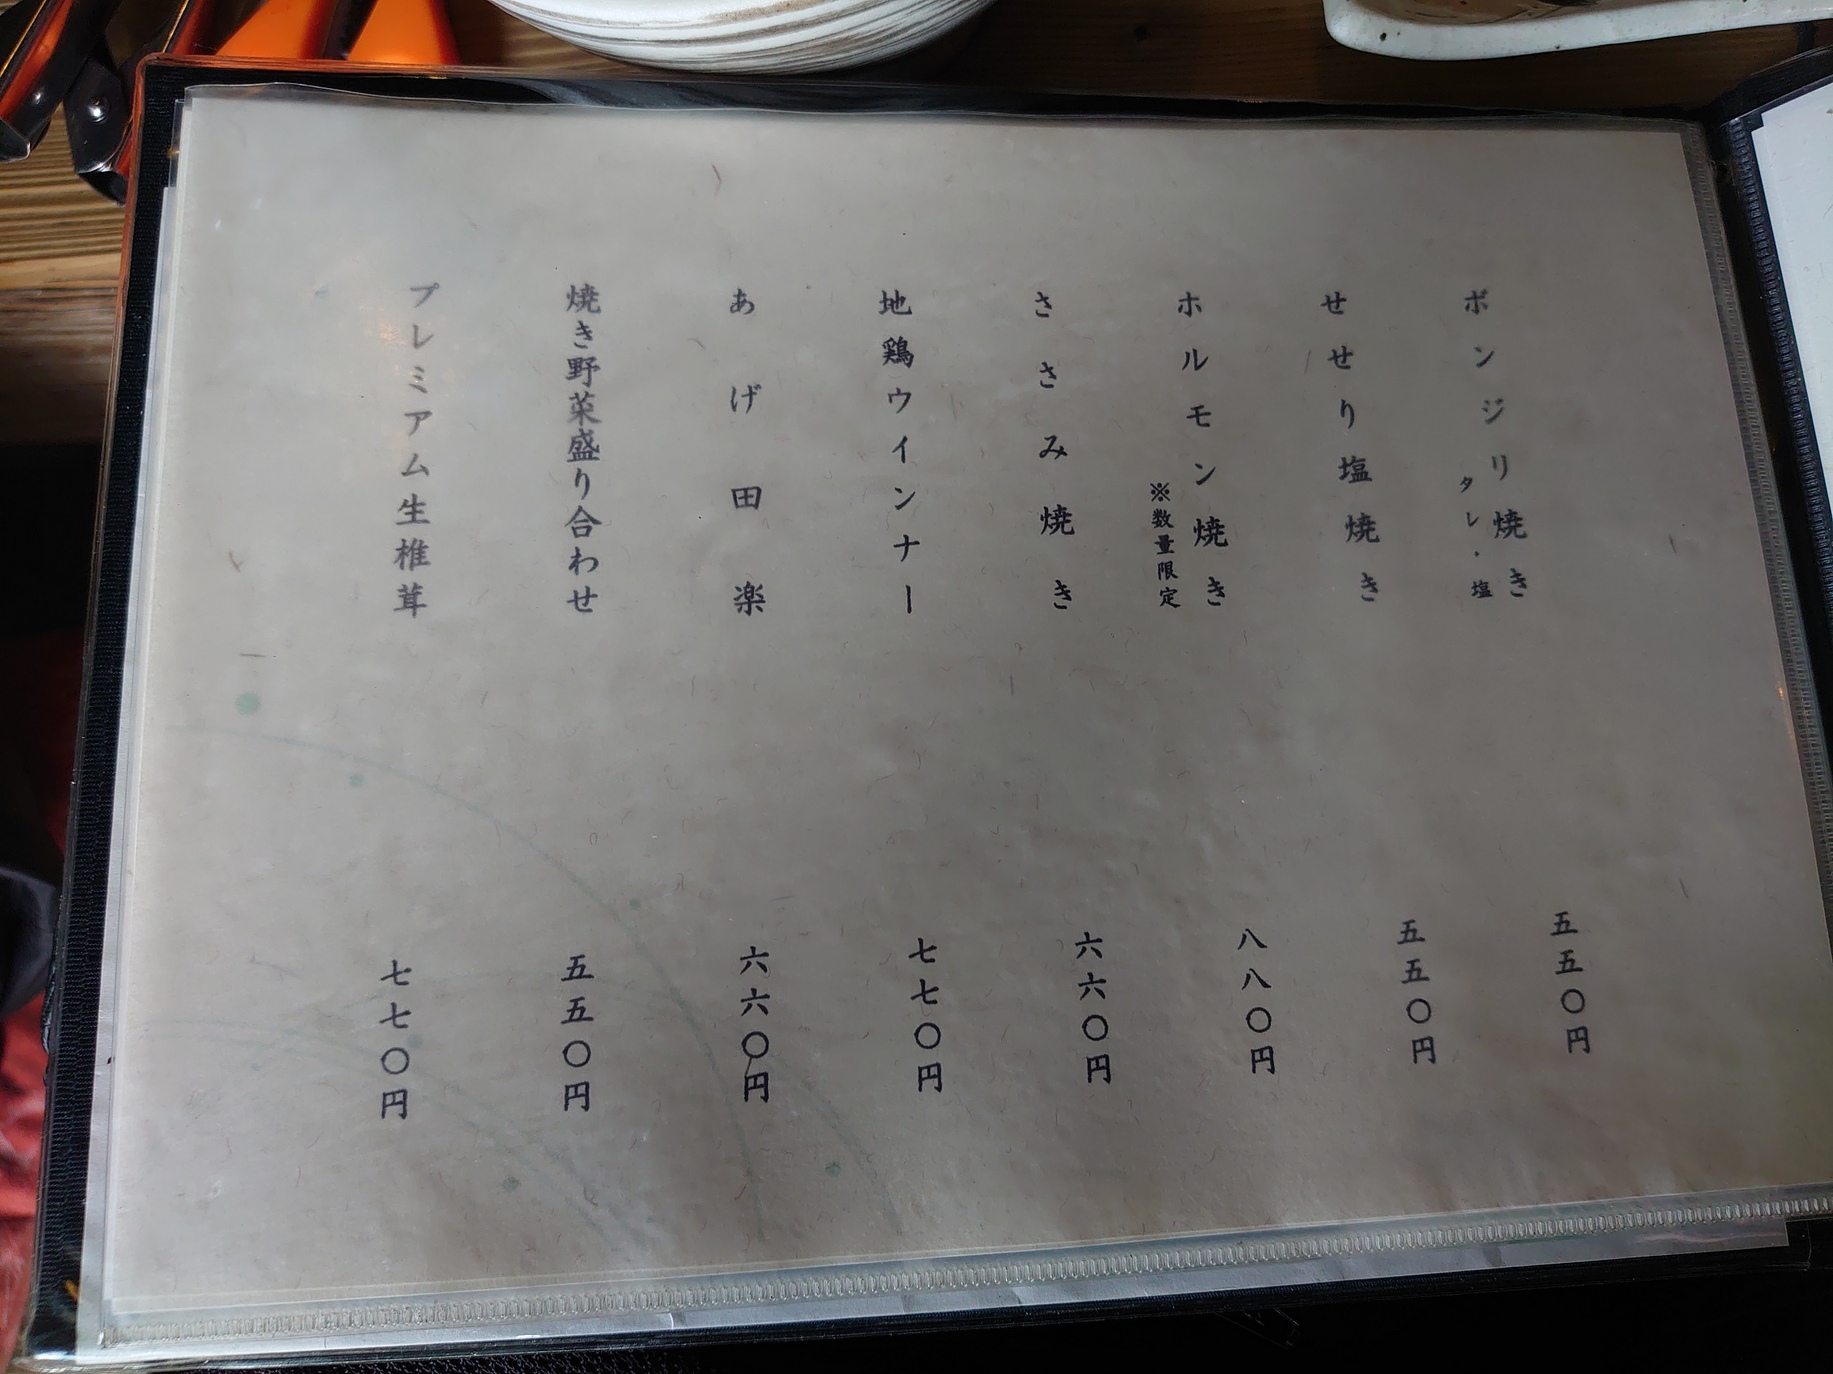 ボンジリ焼き
タレ・塩
五五〇円
せせり塩焼き
五五〇円
ホルモン焼き
※数量限定
八八〇円
ささみ焼き
六六〇円
地鶏ウインナー
七七〇円
あげ田楽
六六〇円
焼き野菜盛り合わせ
五五〇円
プレミアム生椎茸
七七〇円